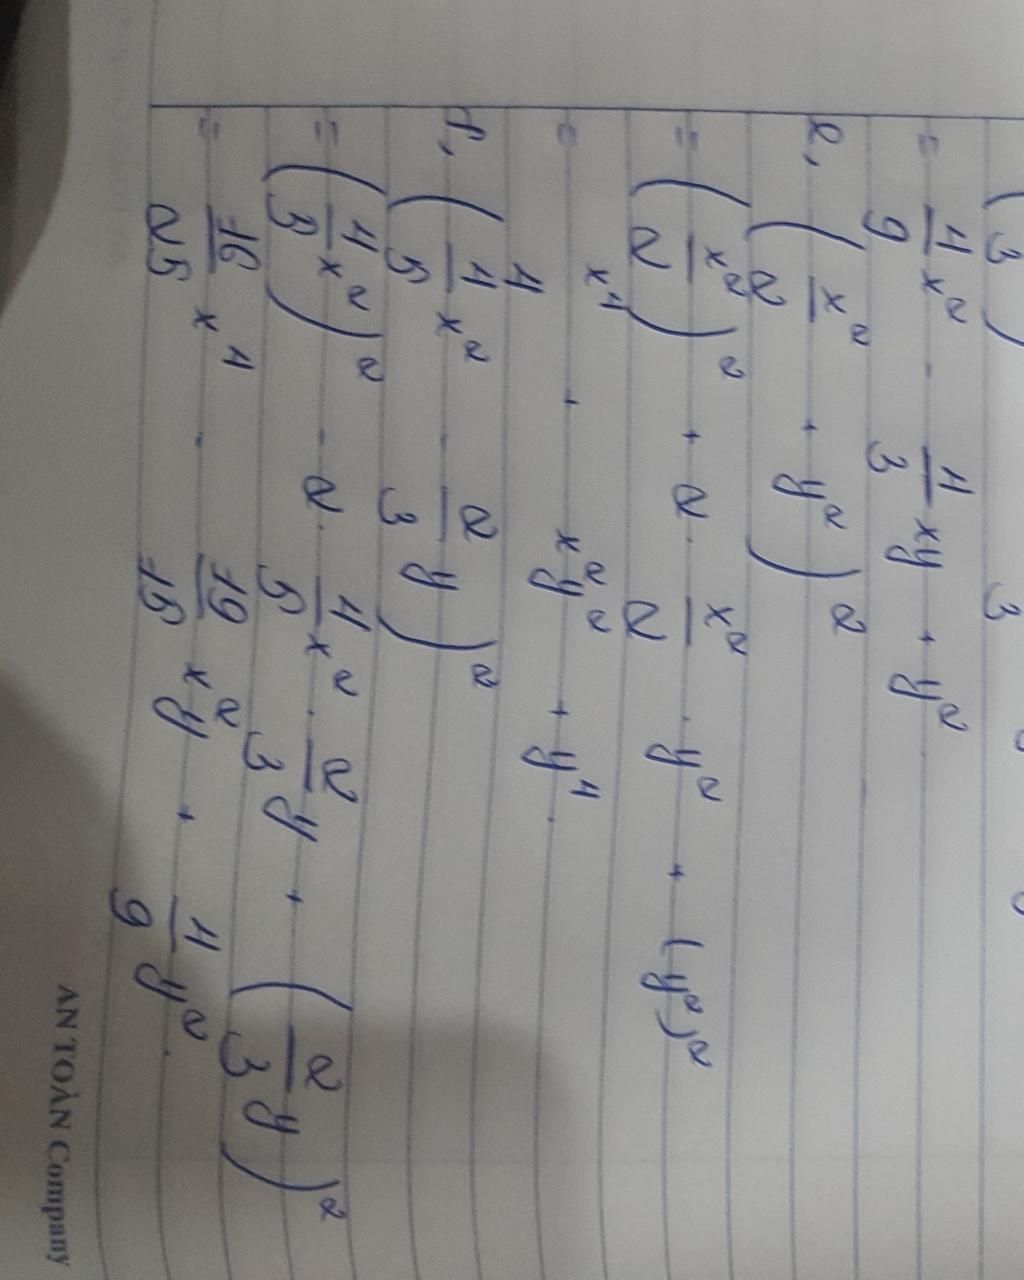 = 4/9 x² - 4/3 xy + y²
e, (x²/2 + y²)²
= (x²/2)² + 2 . x²/2 . y² + (y²)²
= x⁴/4 + x²y² + y⁴.
f, (4/5 x² - 2/3 y)²
= (4/5 x²)² - 2 . 4/5 x² . 2/3 y + (2/3 y)²
= 16/25 x⁴ - 19/15 x²y + 4/9 y².
AN TOÀN Company